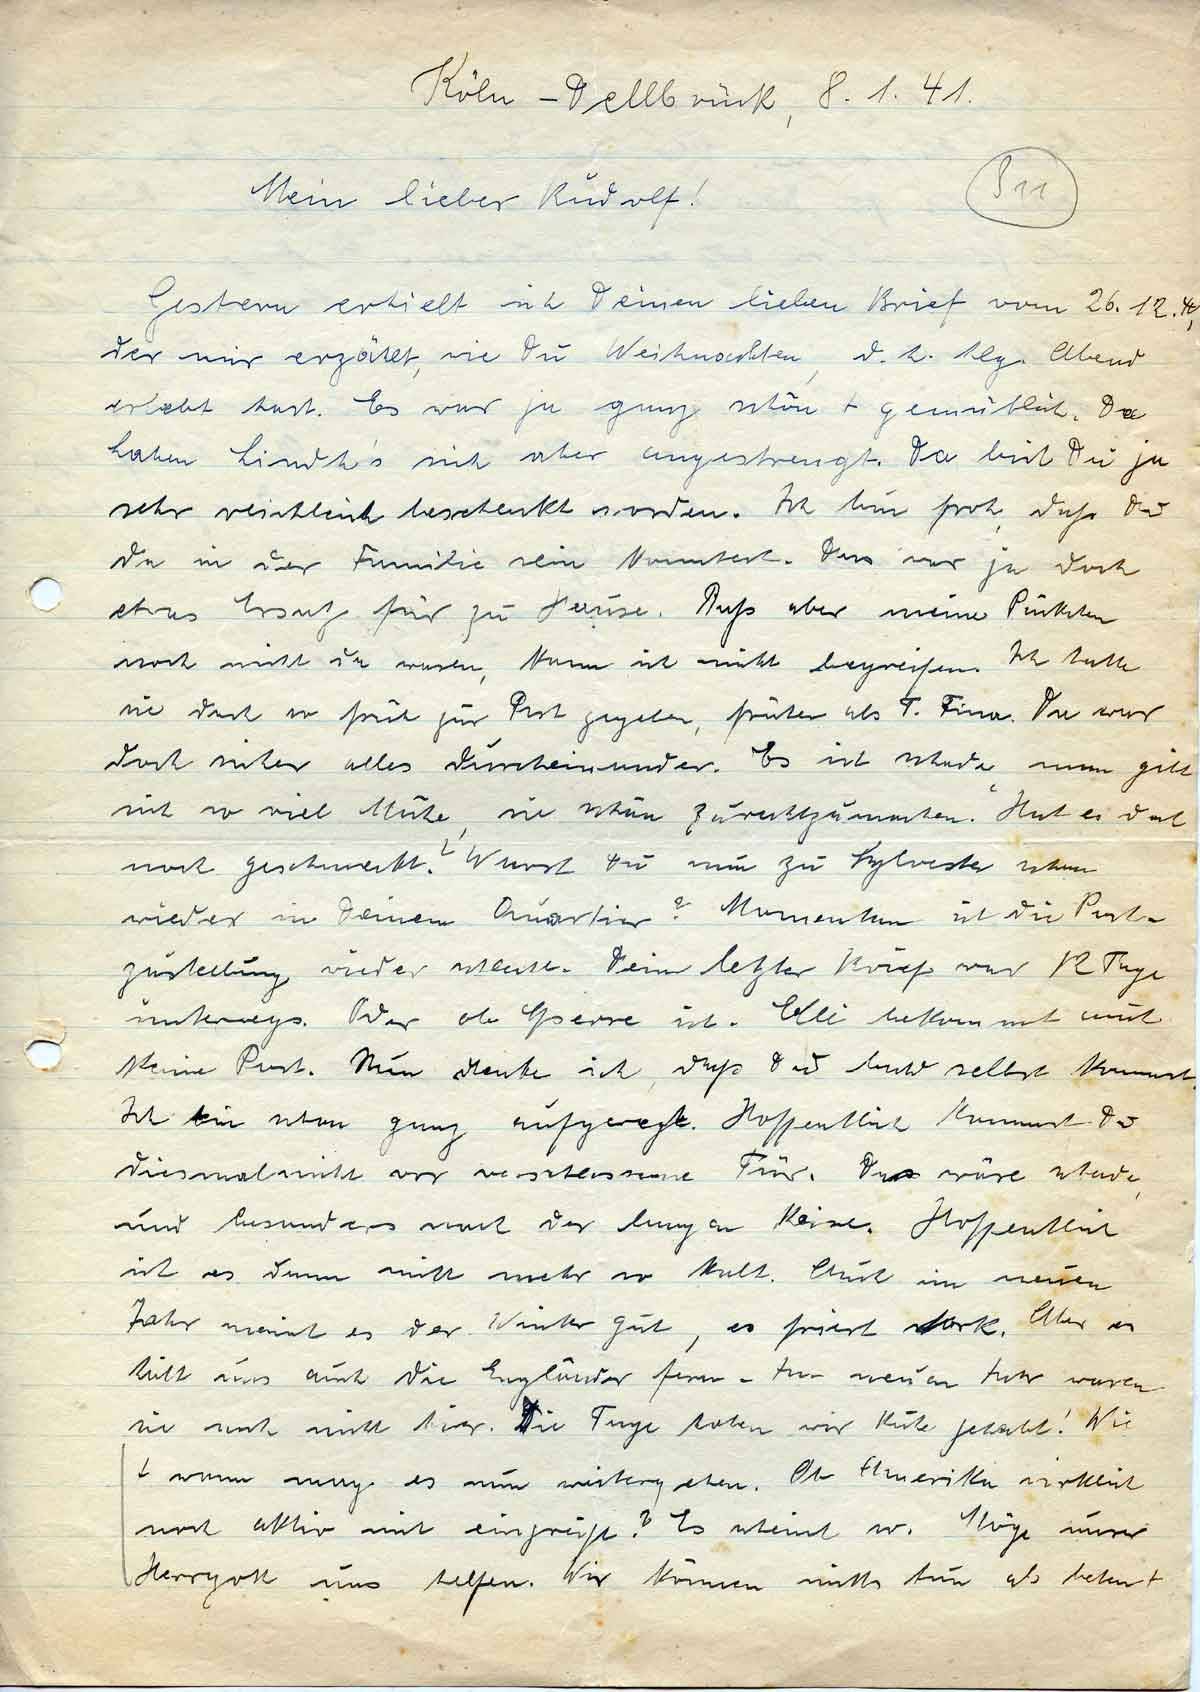 Köln-Dellbrück, 8. 1. 41.
Mein lieber Rudolf!
Gestern erhielt ich Deinen lieben Brief vom 26. 12. 40,
der mir erzählt, wie Du Weihnachten, d. h. hlg. Abend
erlebt hast. Es war ja ganz schön + gemütlich. Da
haben sich aber angestrengt. Da bist Du ja
sehr reichlich beschenkt worden. Ich bin froh, daß Du
da in der Familie sein konntest. Das war ja doch
etwas Ersatz für zu Hause. Daß aber meine Päckchen
noch nicht da waren, kann ich nicht begreifen. Ich hatte
sie doch so früh zur Post gegeben, früher als T. Fina. Da war
doch sicher alles durcheinander. Es ist schade, man gibt
sich so viel Mühe, sie schön zurechtzumachen. Hat es denn
noch geschmeckt? Warst Du nun zu Sylvester schon
wieder in Deinem Quartier? Momentan ist die Post-
zustellung wieder schlecht. Dein letzter Brief war 12 Tage
unterwegs. Oder ob Sperre ist. Elli bekommt auch
keine Post. Nun denke ich, daß Du bald selbst kommst.
Ich bin schon ganz aufgeregt. Hoffentlich kommst Du
diesmal nicht vor verschlossene Tür. Das wäre schade,
und besonders nach der langen Reise. Hoffentlich
ist es dann nicht mehr so kalt. Auch im neuen
Jahr meint es der Winter gut, es friert stark. Aber es
hält uns auch die Engländer fern. Im neuen Jahr waren
sie noch nicht hier. Die Tage haben wir Ruhe gehabt! Wie
+ wann mag es nun weitergehen. Ob Amerika wirklich
noch aktiv mit eingreift? Es scheint so. Möge unser
Herrgott uns helfen. Wir können nichts tun als beten +